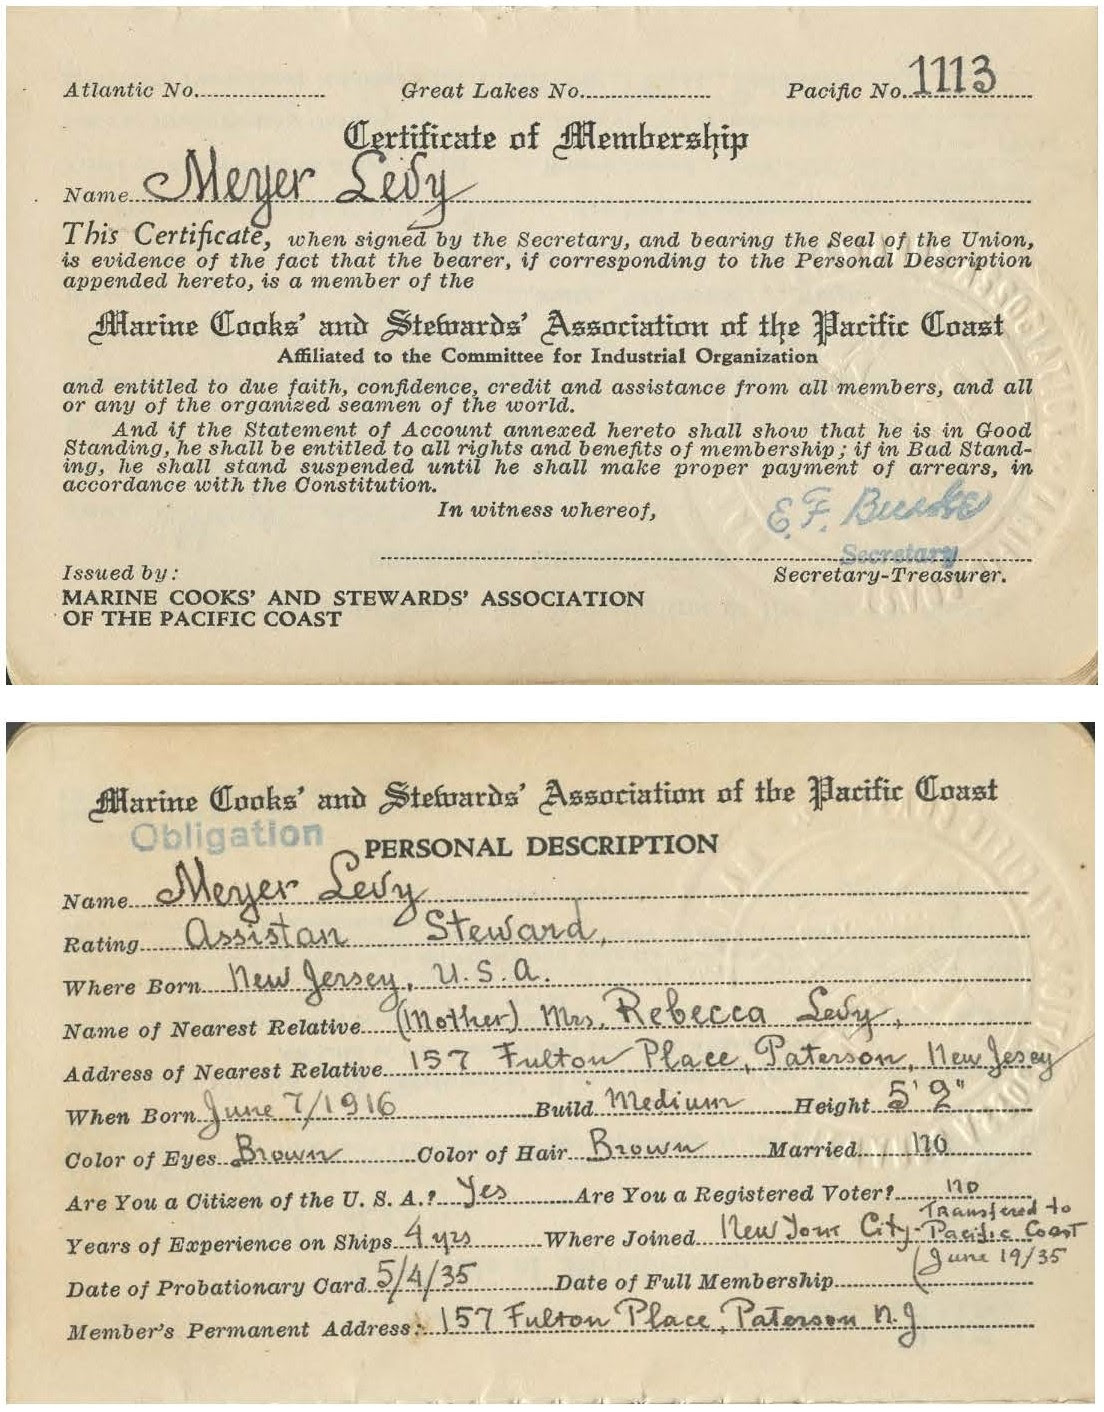 Atlantic No. Great Lakes No. Pacific No. 1113
Certificate of Membership
Name Meyer Levy
This Certificate, when signed by the Secretary, and bearing the Seal of the Union,
is evidence of the fact that the bearer, if corresponding to the Personal Description
appended hereto, is a member of the
Marine Cooks' and Stewards' Association of the Pacific Coast
Affiliated to the Committee for Industrial Organization
and entitled to due faith, confidence, credit and assistance from all members, and all
or any of the organized seamen of the world.
And if the Statement of Account annexed hereto shall show that he is in Good
Standing, he shall be entitled to all rights and benefits of membership; if in Bad Stand-
ing, he shall stand suspended until he shall make proper payment of arrears, in
accordance with the Constitution.
In witness whereof,
E. F. Burke
Secretary
Issued by: Secretary-Treasurer.
MARINE COOKS' AND STEWARDS' ASSOCIATION
OF THE PACIFIC COAST
Marine Cooks' and Stewards' Association of the Pacific Coast
Obligation
PERSONAL DESCRIPTION
Name Meyer Levy
Rating Assistan Steward,
Where Born New Jersey, U.S.A.
Name of Nearest Relative (Mother) Mrs. Rebecca Levy,
Address of Nearest Relative 157 Fulton Place, Paterson, New Jesey
When Born June 7/1916 Build Medium Height 5' 9"
Color of Eyes Brown Color of Hair Brown Married no
Are You a Citizen of the U. S. A.? Yes Are You a Registered Voter? no
Years of Experience on Ships 4 yrs Where Joined New York City - Transfered to Pacific Coast
(June 19/35
Date of Probationary Card 5/4/35 Date of Full Membership
Member's Permanent Address: 157 Fulton Place, Paterson N.J